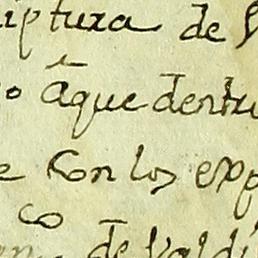 iptura de V
o aque dentr
e Con los exp
co
de Valdi